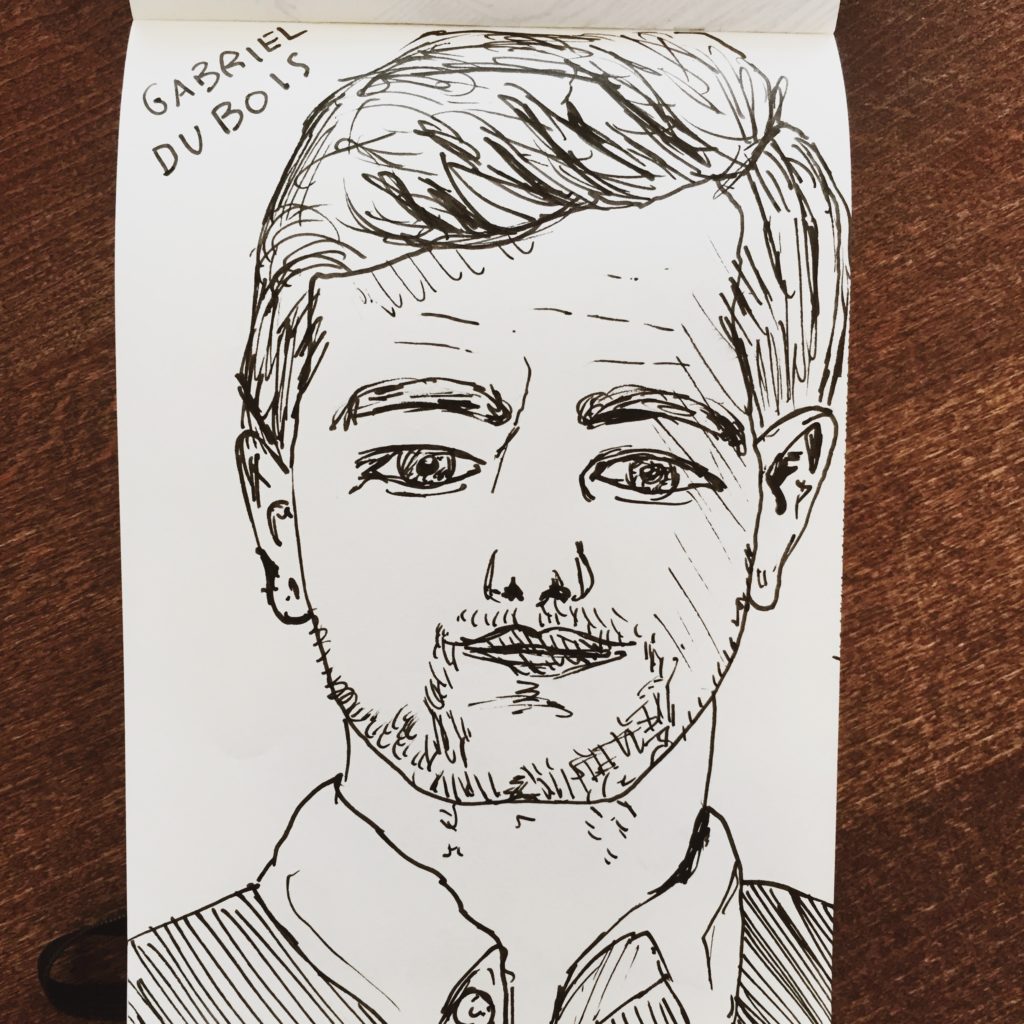 GABRIEL
DU BOIS